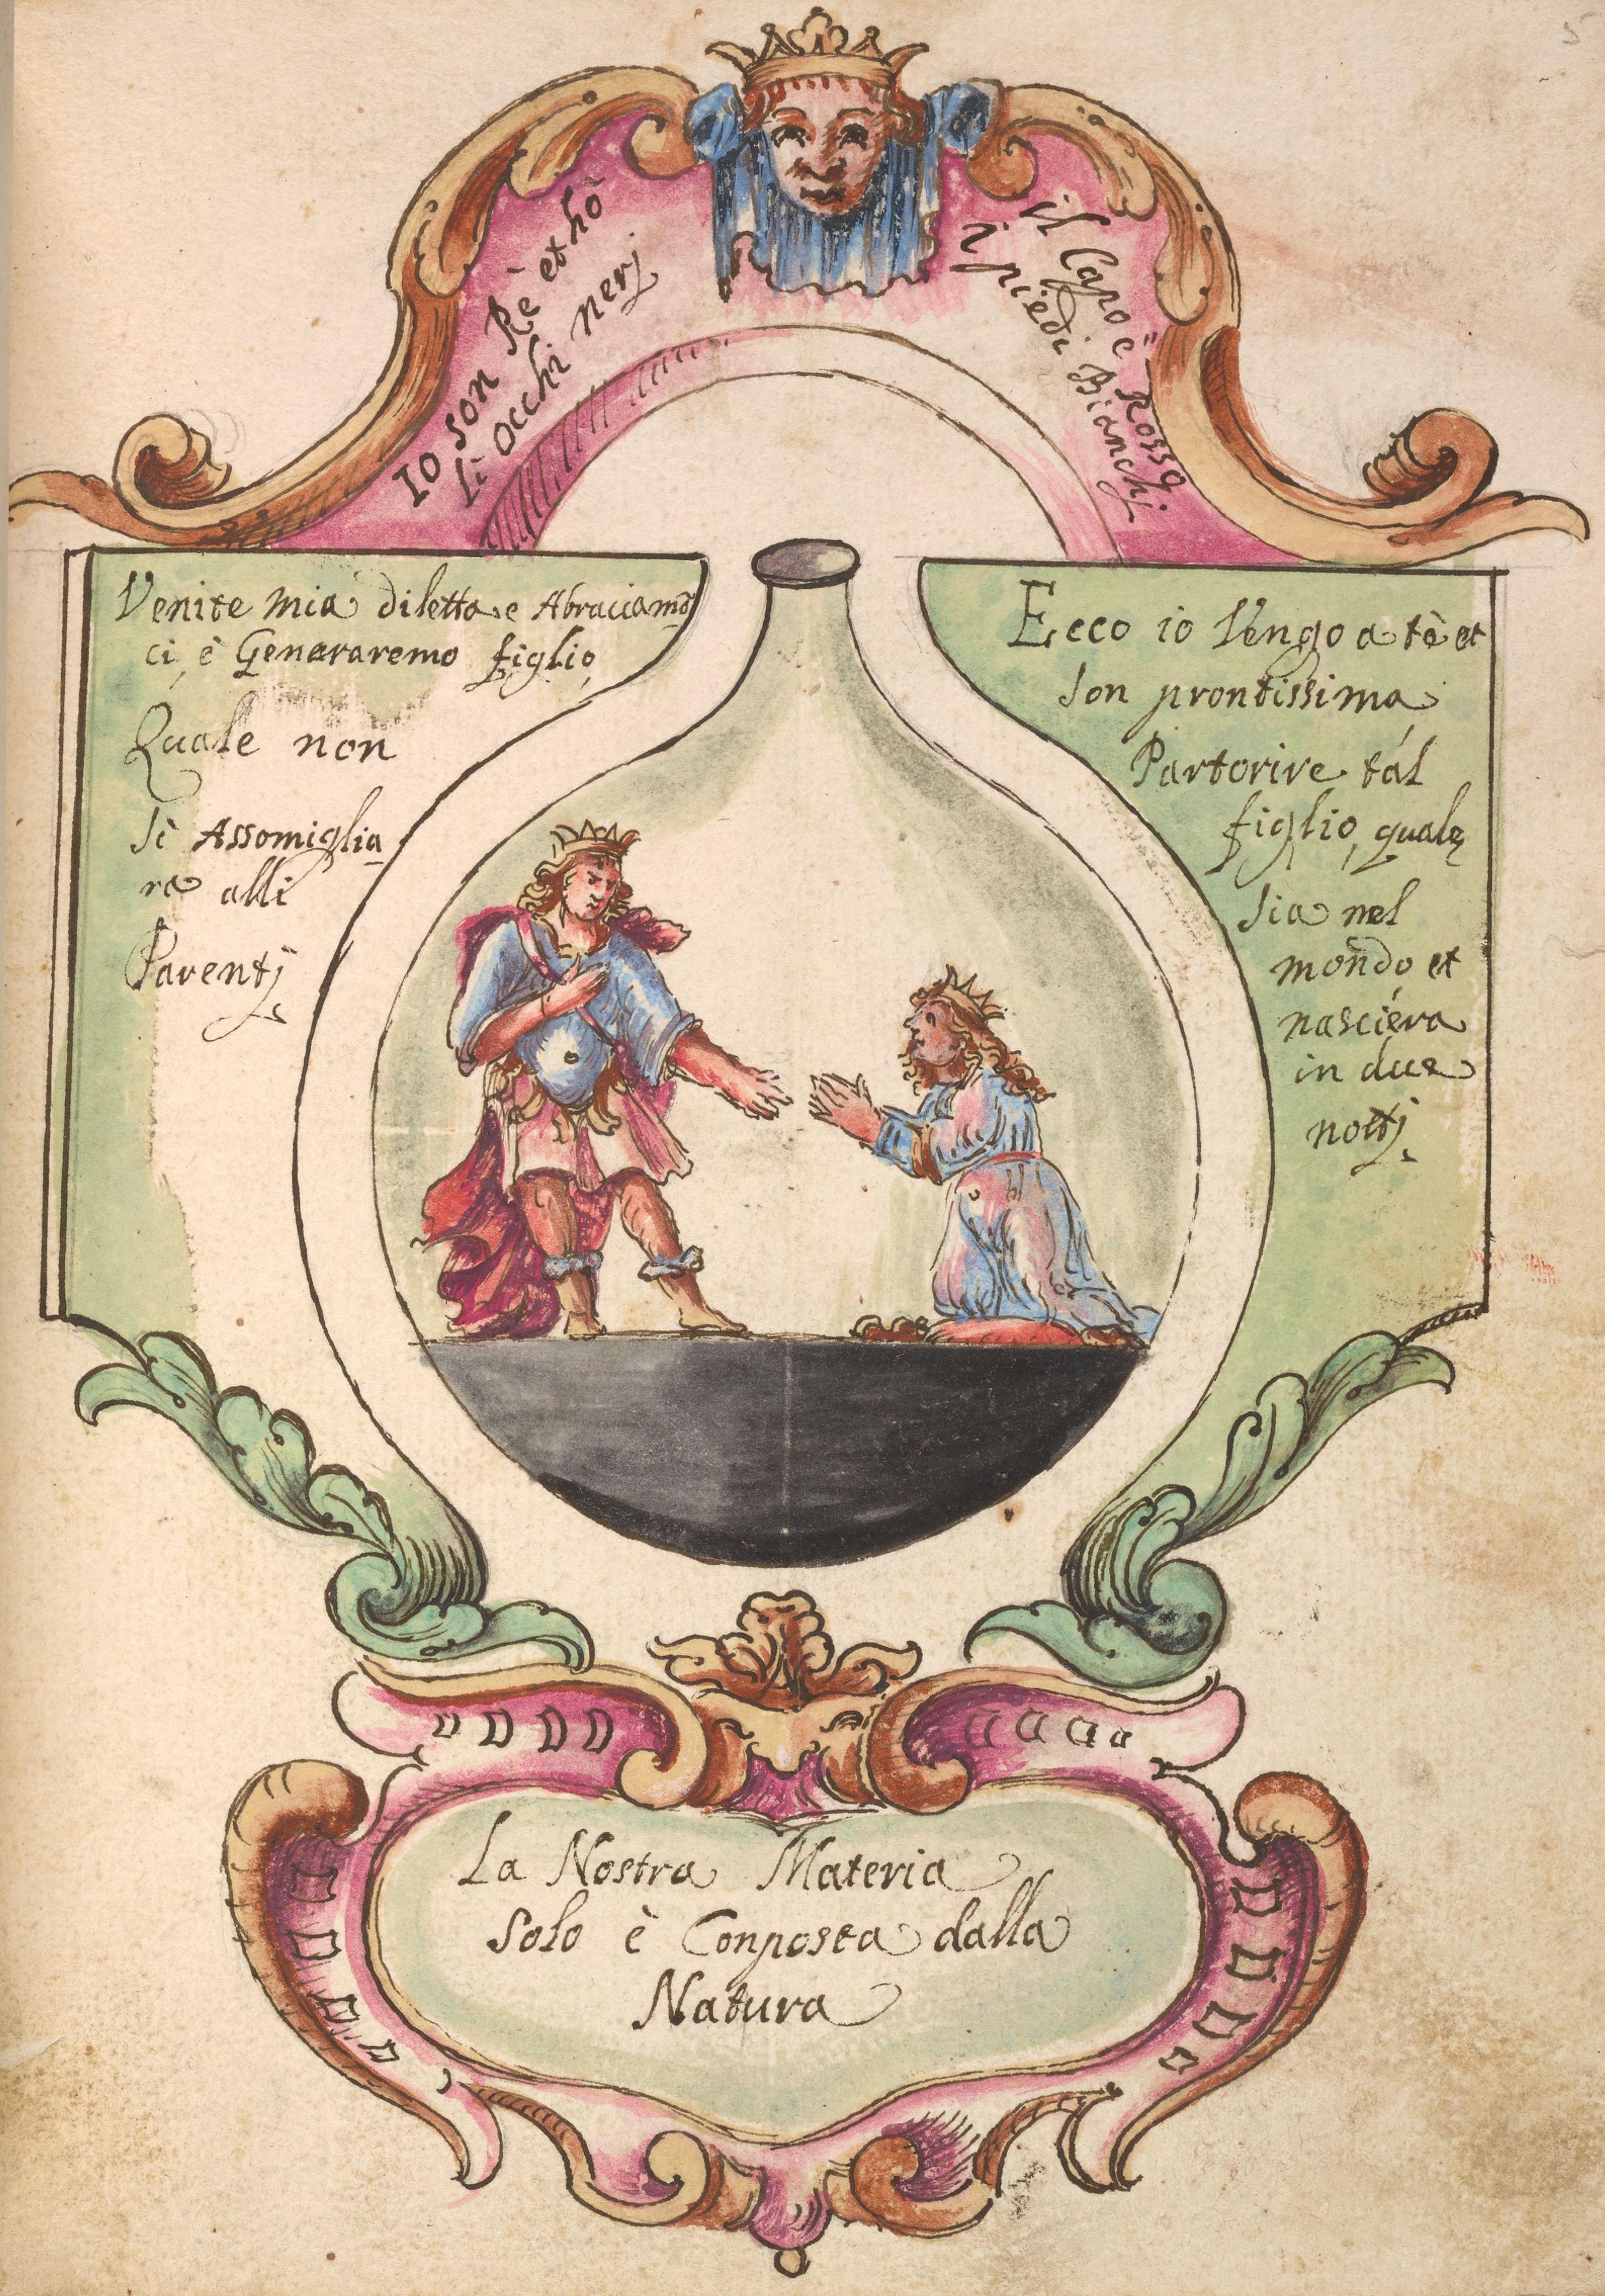 5
Io son Rè et hò
li occhi nerj
il Capo è Rosso
i piedi Bianchj
Venite mia diletta e Abracciamo
ci, è Genararemo figlio,
Quale non
si Assomiglia
ra alli
Parentj
Ecco io Vengo a tè et
son prontissima
Partorire tál
figlio, quale
sia nel
mondo, et
nasciéra
in due
nottj
La Nostra Materia
solo è Conposta dalla
Natura